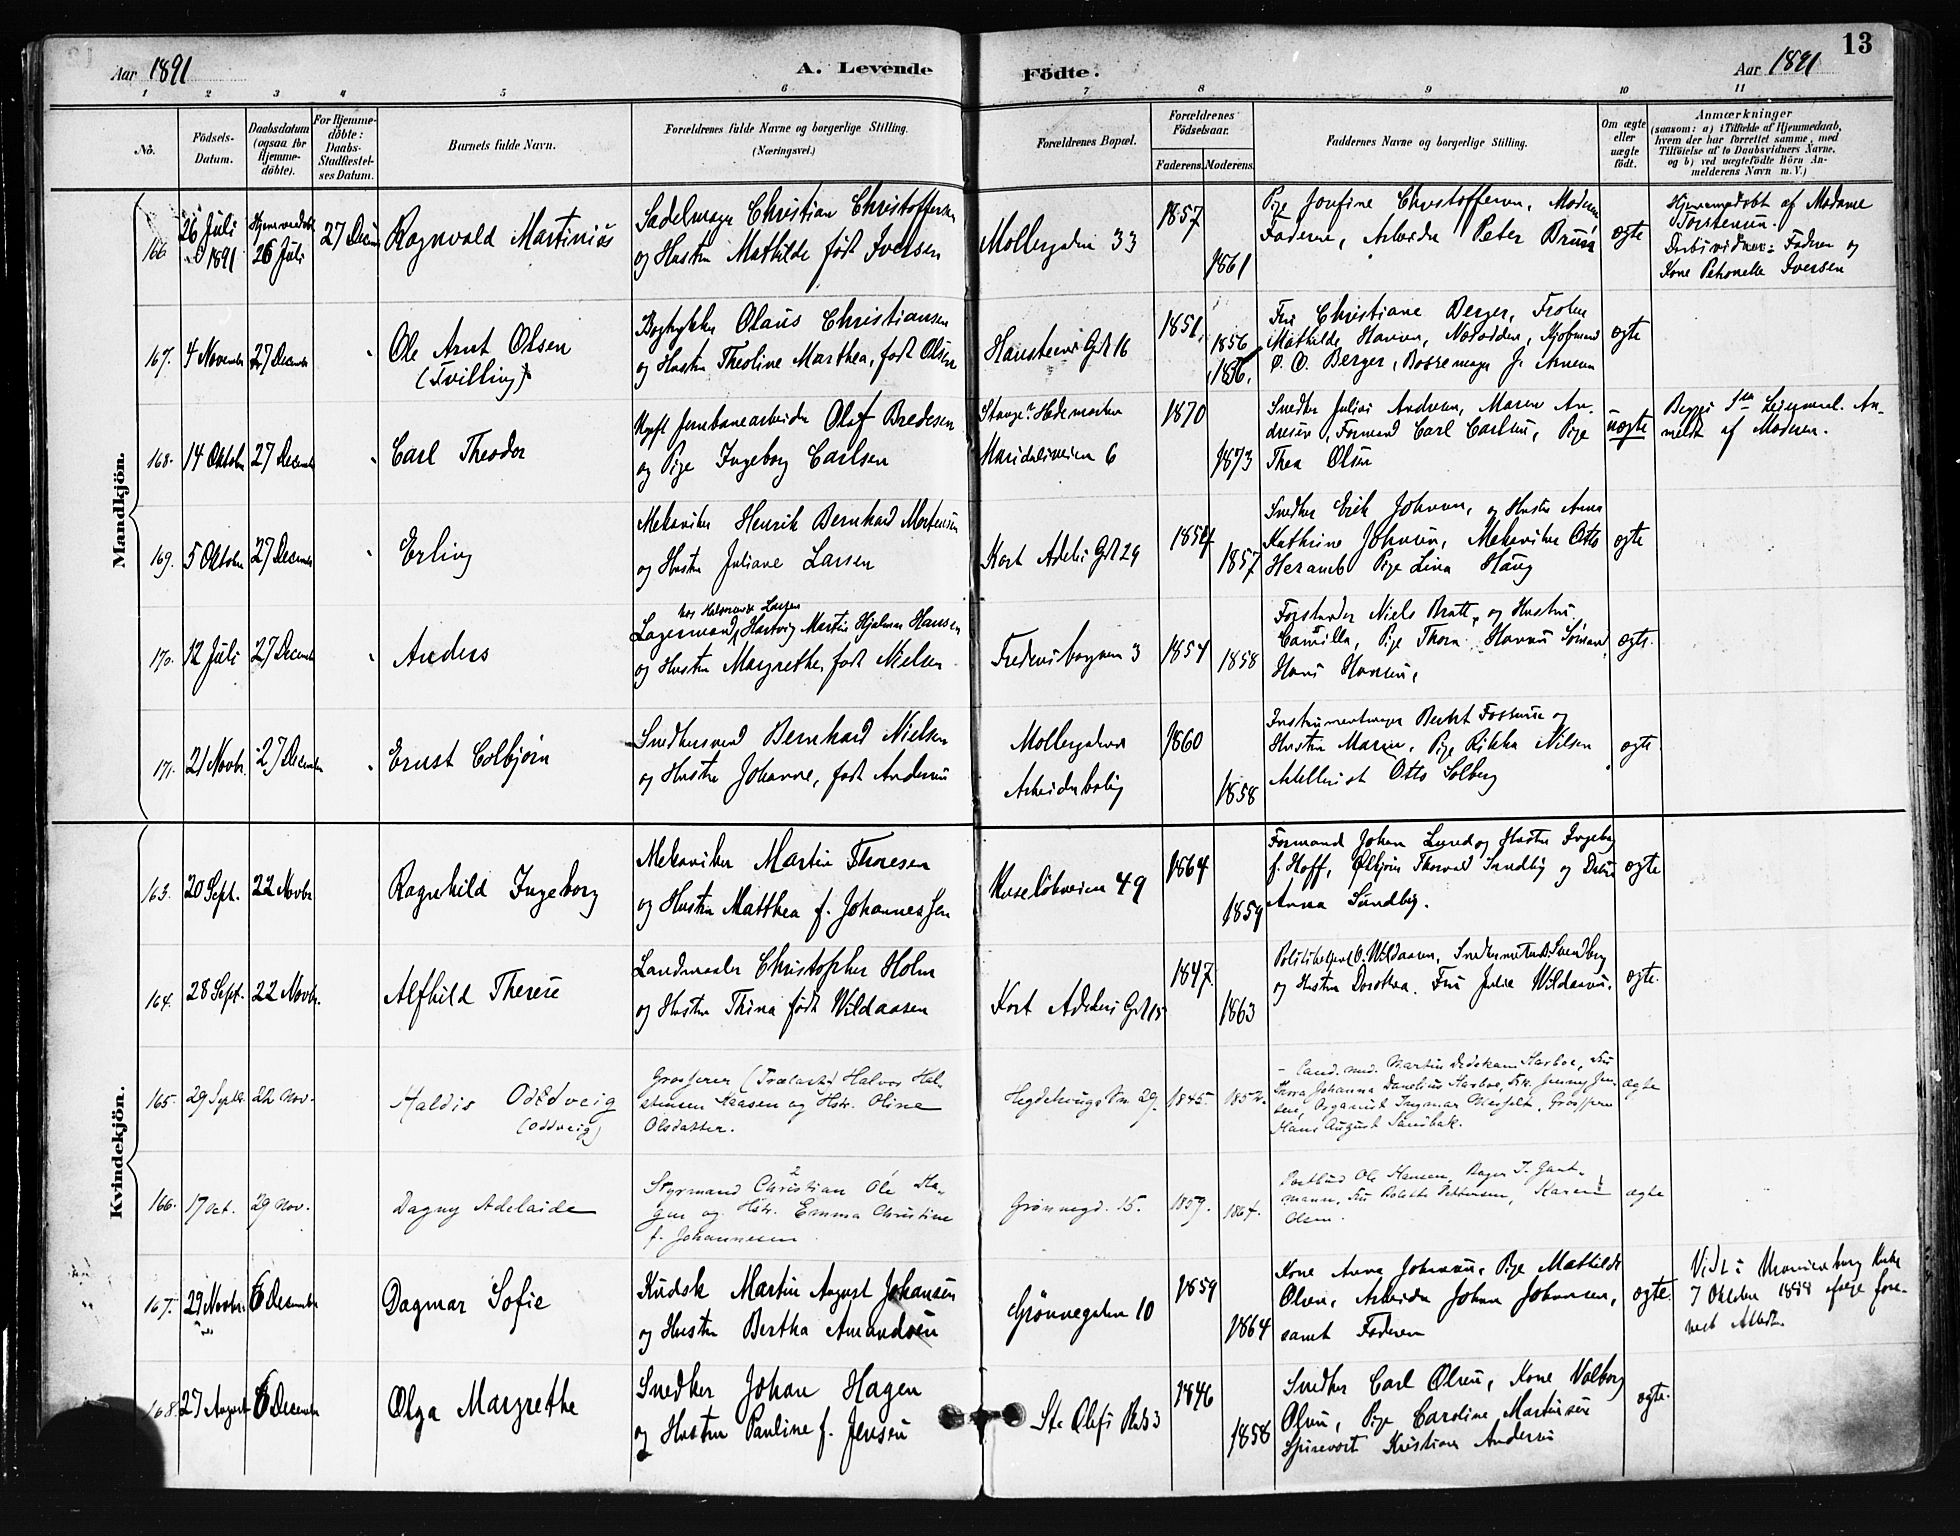 13
Aar 1891
A. Levende Födte.
Aar 1891
1 2 3 4 5 6 7 8 9 10 11
No.
Födsels-Datum.
Daabsdatum (ogsaa for Hjemme-döbte).
For Hjemme-döbte: Daabs-Stadfæstel-ses Datum.
Barnets fulde Navn.
Forældrenes fulde Navne og borgerlige Stilling.
(Næringsvei.)
Forældrenes Bopæl.
Forældrenes Födselsaar.
Faderens. Moderens.
Faddernes Navne og borgerlige Stilling.
Om ægte eller uægte födt.
Anmærkninger
(saasom: a) i Tilfælde af Hjemmedaab,
hvem der har forrettet samme, med
Tilföielse af to Daabsvidners Navne,
og b) ved uægtefödte Börn An-
melderens Navn m. V.)
Mandkjön.
166 26 Juli 1891 Hjemmedøbt 26 Juli 27 Decem Ragnvald Martinius
Sadelmager Christian Christoffersen
og Hustru Mathilde født Iversen
Møllergaden 33
1857
1861
Pige Josefine Christoffersen, Moderen
Faderen, Arbeider Peter Bruun
ægte
Hjemmedøbt af Madame
Torstensen.
Daabsvidner: Fadren og
Kone Petronelle Iversen
167. 4 November 27 December Ole Arnt Olsen
(Tvilling)
Olaus Christiansen
og Hustru Theoline Marthea, født Olsen
Hausteens Gd 16
1851.
1856
1856.
Fru Christiane Berger, Frøken
Mathilde Hansen, Kjøbmand
C. O. Berger, J. Arnesen
ægte
168. 14 Oktober 27 December Carl Theodor
Ugift Jernbanearbeider Olaf Bredesen
og Pige Ingeborg Carlsen
Stange Hedemarken
Maridalsveien 6
1870
1873
Snedker Julius Andresen, Maren An-
dresen, Formand Carl Carlsen, Pige
Thea Olsen
uægte
Begges 1ste Leiermaal. An-
meldt af Moderen.
169. 5 Oktober 27 December Erling
Mekaniker Henrik Bernhard Mortensen
og Hustru Juliane Larsen
Kort Adelers Gd 29
1857
Snedker Erik Johnsen, og Hustru Anna
Kathrine Johnsen, Mekaniker Otto
Heramb Pige Lina Haug
ægte
170. 12 Juli 27 December Anders
Lagermand, Hartvig Martin Hjalmar Hansen
og Hustru Margrethe, født Nielsen
3
1854
1858
Niels Bratt, og Hustru
Camilla, Pige Thora Hansen Sømand
Hans Hansen,
ægte.
171. 21 Novbr. 27 December Ernst Colbjørn
Snedkersvend Bernhard Nielsen
og Hustru Johanne, født Andersen
Møllergadens
Arbeiderbolig
1860
1858
Instrumentmager Berent Fossum og
Hustru Maren, Pige Rikka Nilsen
Artillerist Otto Solberg
ægte
Kvindekjön.
163. 20 Sept. 22 Novbr Ragnhild Ingeborg
Mekaniker Martin Thoresen
og Hustru Matthea f. Johannessen
Ruseløkveien 49
1864
1859
Formand Johan Lund og Hustru Ingeborg
f. Hoff, Thorvald Sundby og
Anna Sundby.
ægte
164. 28 Sept. 22 Novbr. Alfhild Therese
Landmaaler Christopher Holm
og Hustru Thina født Vildaasen
Kort Adelers Gd 15
1847.
1863
Politibetjent O. Wildaasen, Svendberg
og Hustru Dorothea. Fru Julie Wildaasen.
ægte.
165. 29 Septbr. 22 Nov. Haldis Oddveig
(Oddveig)
Grosserer (Trælast) Halvor Hal-
stensen Aasen og Hstr. Oline
Olsdatter.
Hegdehaugs Vn 29.
1845.
Cand. med. Martin Dedekam Harboe, Fru
Thora Johanna Danelius Harboe, Frk. Jenny Jen-
sen, Organist Ingmar Grosserer
Hans August Sandbak.
ægte
166. 17 Oct. 29 Nov. Dagny Adelaide
Styrmand Christian Ole Ha-
gen og Hstr. Emma Christine
f. Johannesen
Grønnegd. 15.
1859.
1864.
Postbud Ole Hansen, Bager J. Gant-
mann, Fru Bolette Pettersen, Karen
Olsen.
ægte
167. 29 Novbr. 6 December Dagmar Sofie
Kudsk Martin August Johansen
og Hustru Bertha Amandsen
Grønnegaden 10
1859
1864
Kone Anna Johansen, Pige Mathilde
Olsen, Arbeider Johan Johansen,
samt Faderen
ægte.
Viet i Kirke
7 Oktober 1888 ifølge fore-
vist Attest.
168. 27 August 6 December Olga Margrethe
Snedker Johan Hagen
og Hustru Pauline f. Jensen
St. Olafs Plads 3
1846
1858
Snedker Carl Olsen, Kone Valborg
Olsen, Pige Caroline Martinsen
Kristian Andersen
ægte.